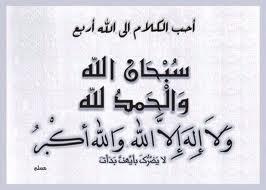 أحب الكلام الى الله أربع
سُبْحَانَ اللَّه
وَالْحَمْدُ لِلَّه
وَلَا إِلَهَ إِلَّا اللَّهُ وَاللَّهُ أَكْبَرُ
لا يَضُرُّكَ بِأَيِّهِنَّ بَدَأْتَ
مسلم